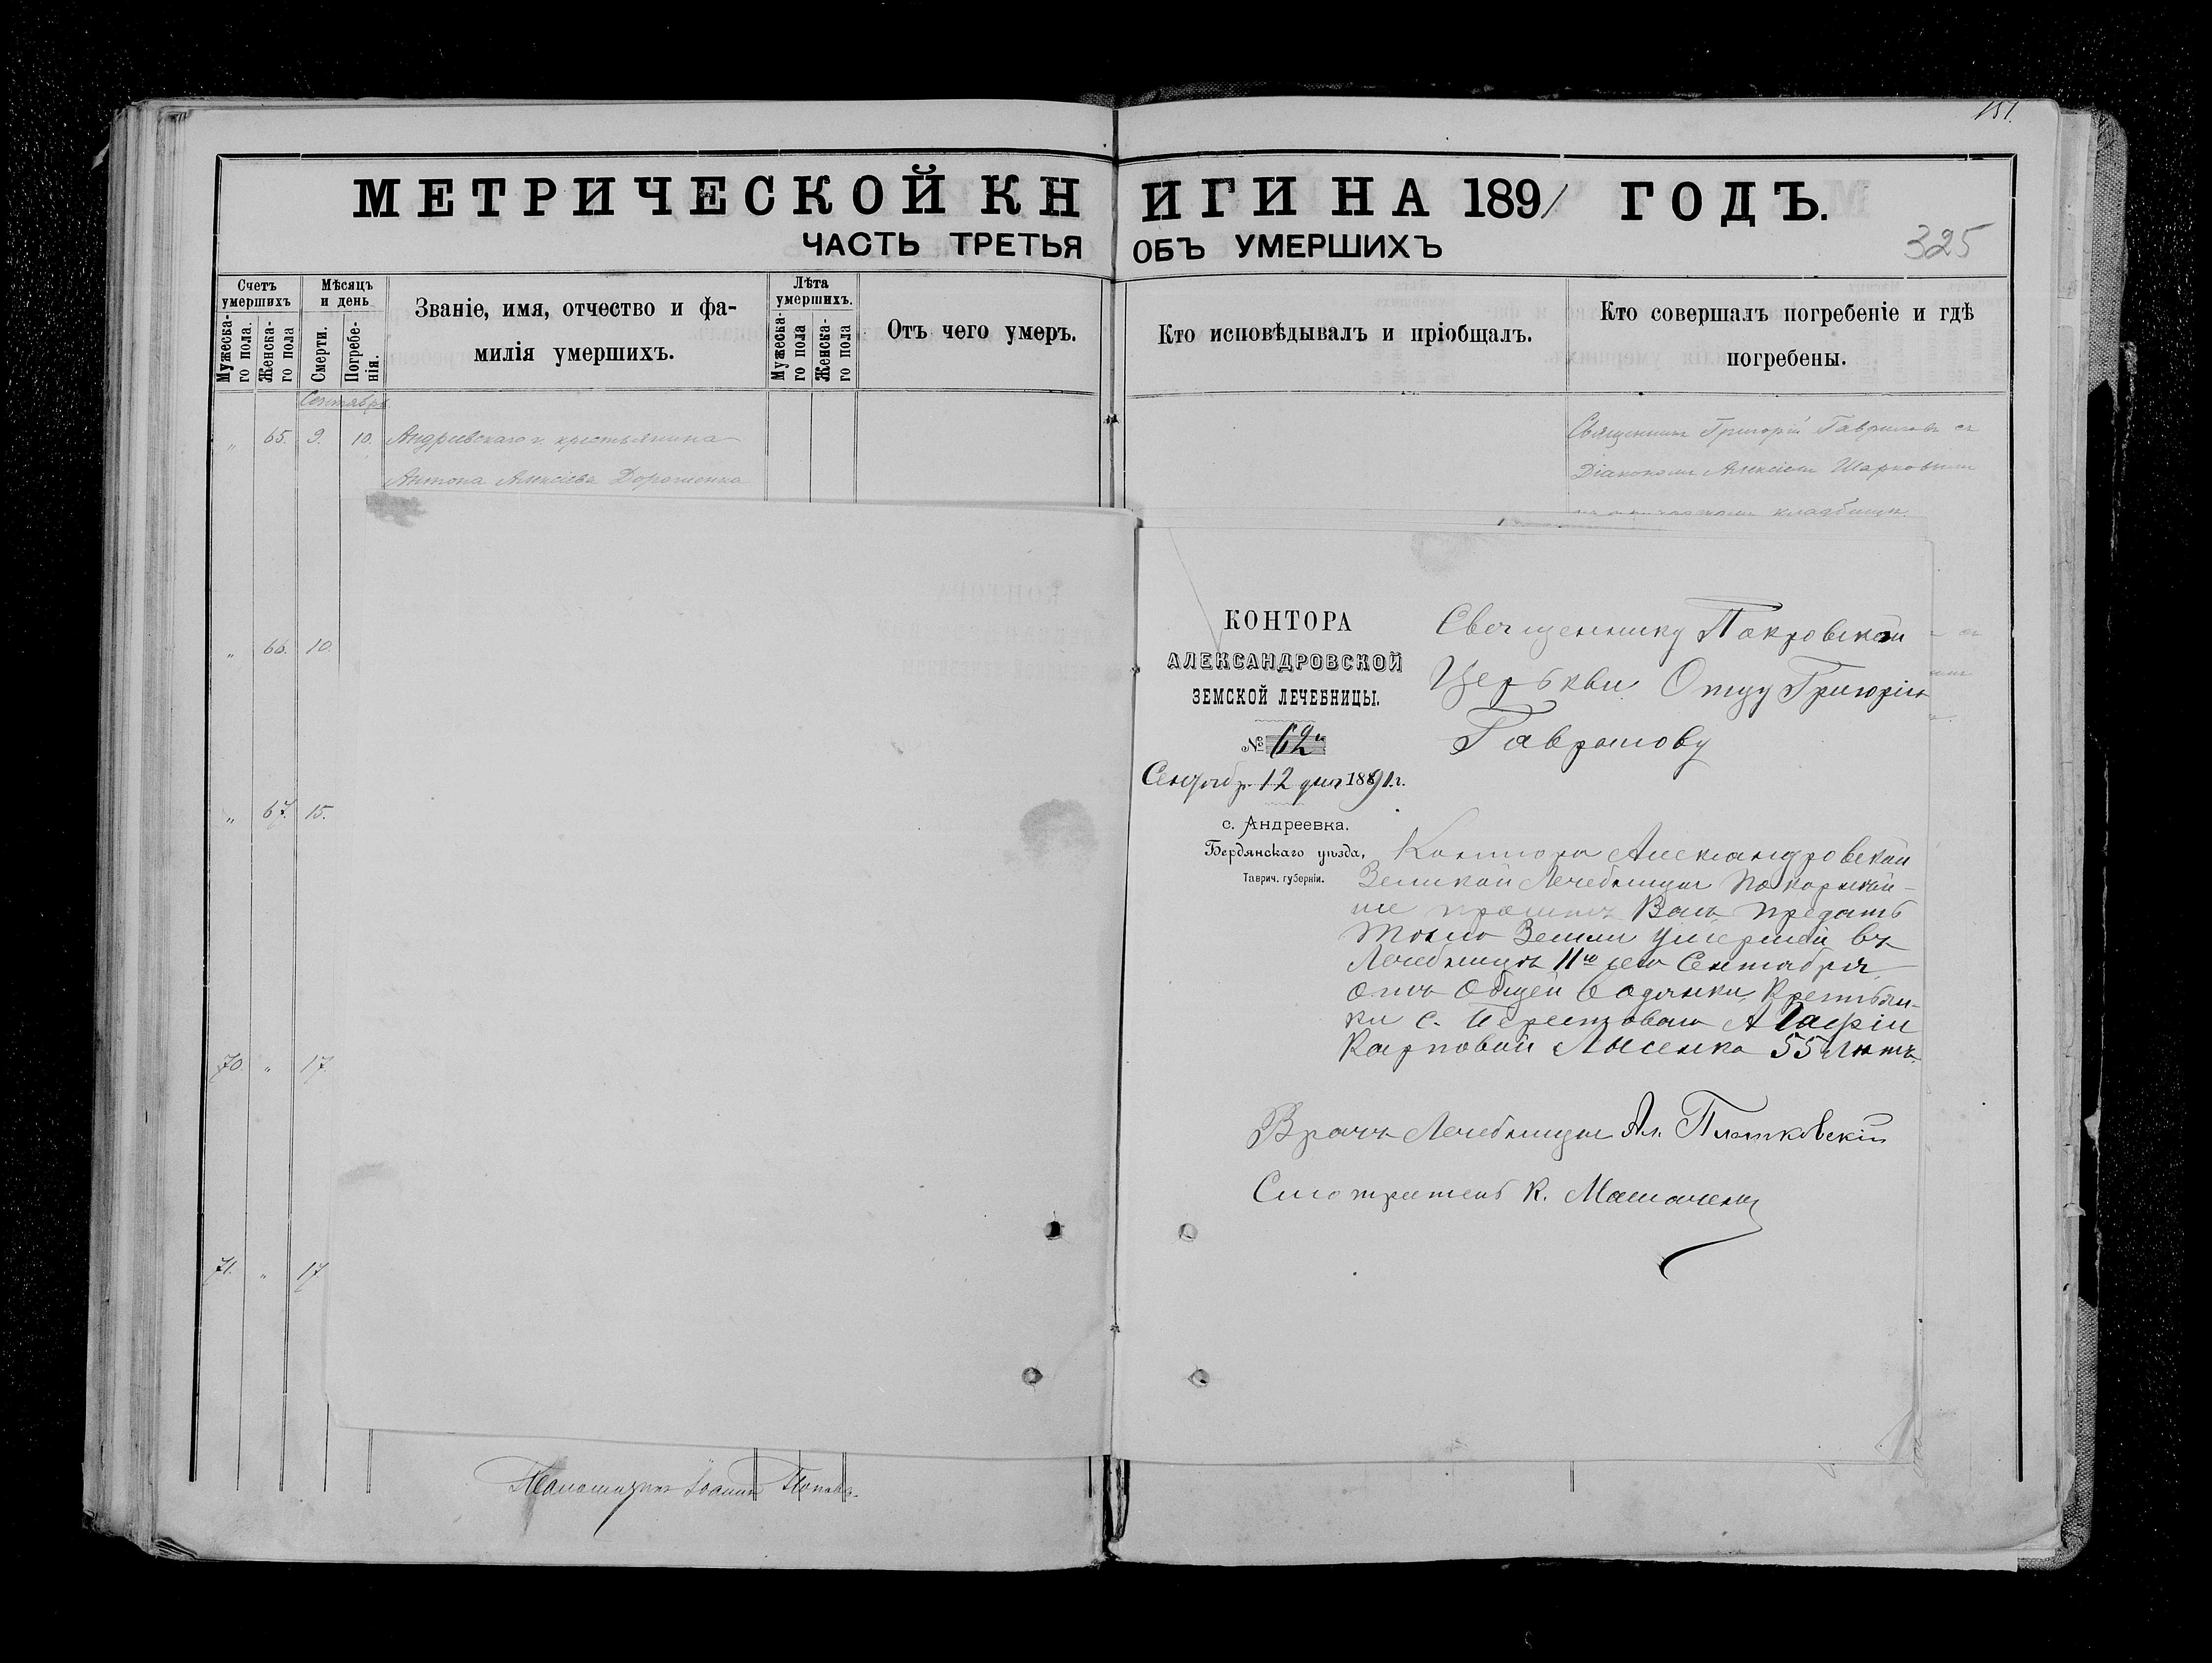 151.
МЕТРИЧЕСКОЙ КНИГИ НА 1891 ГОДЪ.
ЧАСТЬ ТРЕТЬЯ ОБЪ УМЕРШИХЪ
325
Счетъ умершихъ
Мужеска-го пола.
Женска-го пола
Мѣсяцъ и день
Смерти.
Погребе-нія.
Званіе, имя, отчество и фа-
милія умершихъ.
Лѣта умершихъ.
Мужеска-го пола
Женска-го пола
Отъ чего умеръ.
Кто исповѣдывалъ и пріобщалъ.
Кто совершалъ погребеніе и гдѣ
погребены.
Сентябрь
„ 65. 9. 10. Андреевскаго г. крестьянина
Антона Алексіева Дорошенка
Священникъ Григорій Гавриловъ съ
Діакономъ Алексіемъ Шарковымъ
кладбищѣ.
„ 66. 10.
„ 67. 15.
70. „ 17
71. „ 17
КОНТОРА
АЛЕКСАНДРОВСКОЙ
ЗЕМСКОЙ ЛЕЧЕБНИЦЫ.
№ 62й
Сентябр. 12 дня 1891.г.
с. Андреевка.
Бердянскаго уѣзда,
Таврич. губерніи.
Священнику Покровской
Церькви Отцу Григорію
Гаврилову
Контора Александровской
Земской Лечебницы Покорнѣй-
ше проситъ Васъ предать
тѣло Земли умершей въ
Лечебницѣ 11го сего Сентября
отъ Общей Водянки, Крестьян-
ки с. Берестоваго Агафіи
Карповой Лысенко 55 Лѣтъ.
Врачъ Лечебницы Ал.
Смотритель К.
Іоаннъ Поповъ.